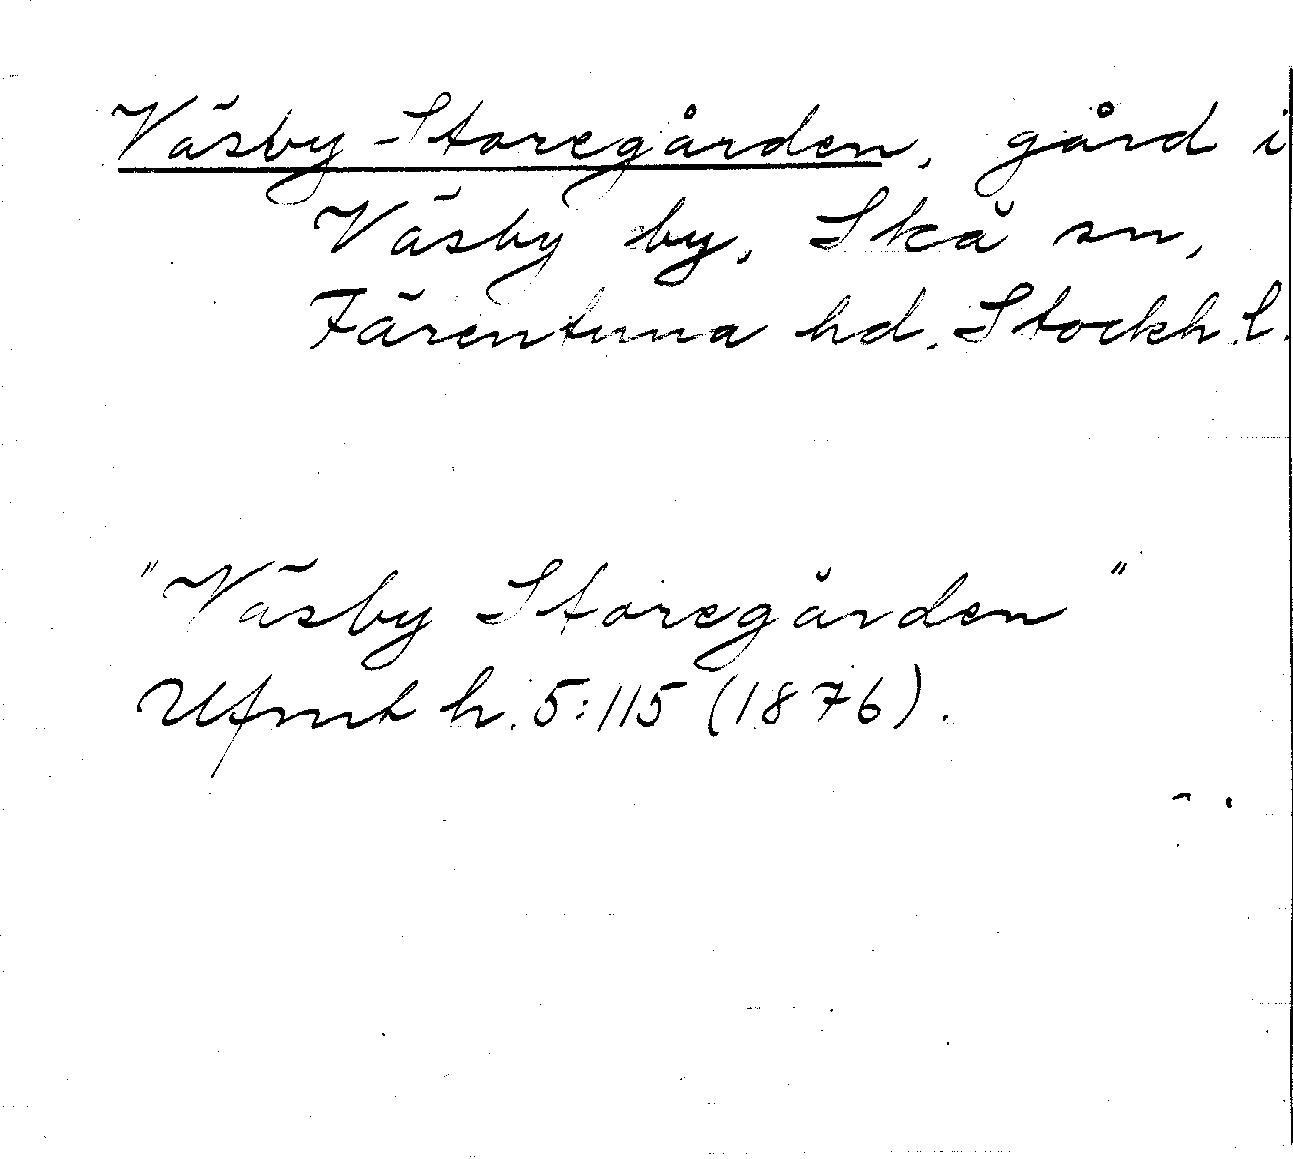 Väsby-Storegården, gård i
Väsby by, Skå sn,
Färentuna hd. Stockh. l.
"Väsby Storegården"
Ufmt h. 5:115 (1876).